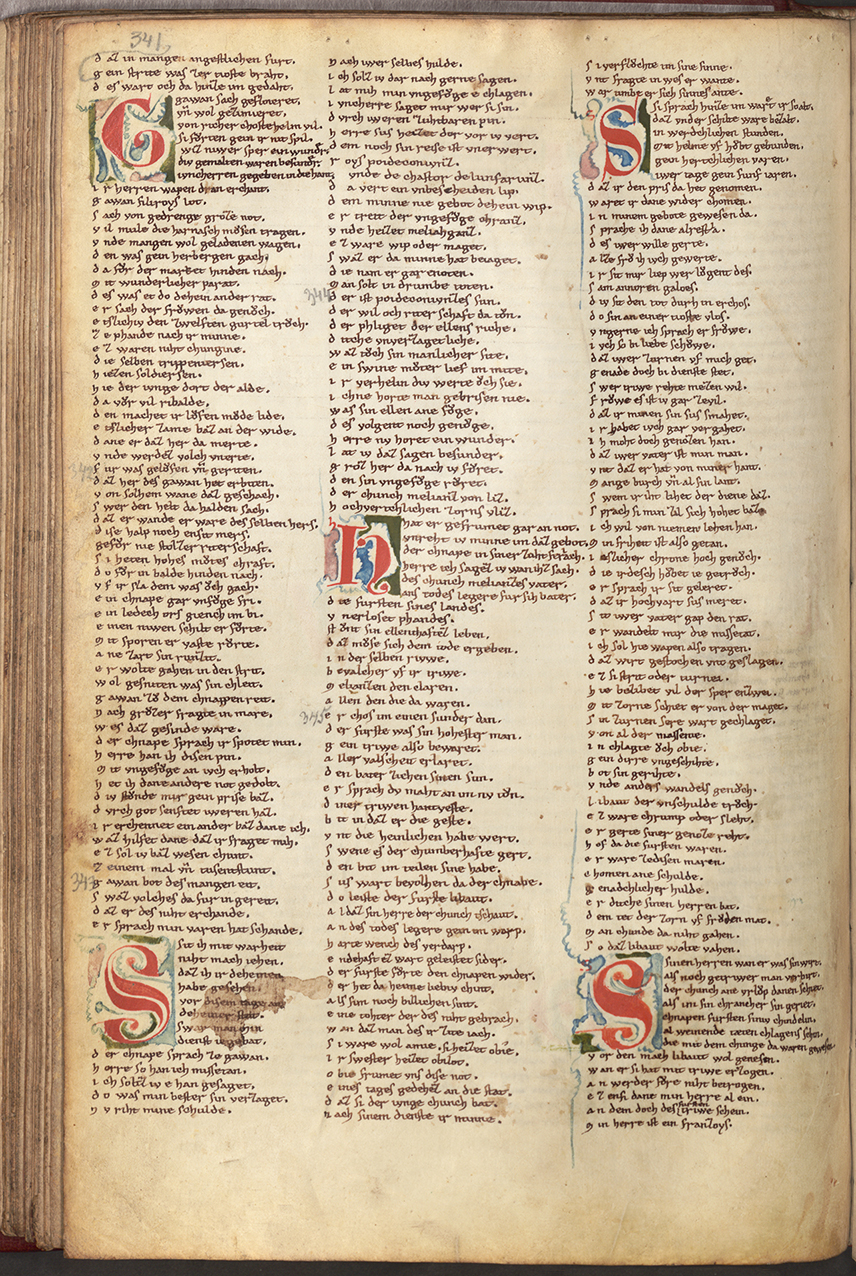 341
d az in mangen angestlichen furt.
g ein strite was zer tioste braht.
d es wart och da hinze im gedaht.
Gawan sach geflorieret.
vñ wol gezimieret.
von richer choste helm vil.
si forten gein ir nit spil.
wiz niwer sper ein wunder.
div gemalten waren besunder.
ivncherren gegeben in die hant.
i r herren wapen dran erchant.
g awan filliroys lot.
s ach von gedrenge groze not.
v il mule die harnasch mosen tragen.
v nde mangen wol geladenen wagen.
d en was gein herbergen gach.
d a for der market hinden nach.
m it wunderlicher parat.
d es was et do dehein ander rat.
e r sach der frowen da genoch.
e tslichiv den zwelften gurtel troch.
z e phande nach ir minne.
e z waren niht chunginne.
d ie selben trippaniersen.
h iezen soldiersen.
h ie der ivnge dort der alde.
d a vor vil ribalde.
d en machet ir lofen mode lide.
e tslicher zame baz an der wide.
d ane er daz her da merte.
v nde werdez volch vnerte.
342
f ur was gelofen vñ geriten.
d az her des gawan het erbiten.
v on solhem wane daz geschach.
s wer den helt da halden sach.
d az er wande er ware des selben hers.
d ise halp noch ensit mers.
gefor nie stolzer riterschaft.
s i heten hohes motes chraft.
d o for in balde hinden nach.
v f ir sla dem was och gach.
e in chnape gar vnfoge fri.
e in ledech ors giench im bi.
e inen niwen schilt er forte.
m it sporen er vaste rorte.
a ne zart sin runzit.
e r wolte gahen in den strit.
w ol gesniten was sin chleit.
g awan zo dem chnapen reit.
n ach grozer fragte in mare.
w es daz gesinde ware.
d er chnape sprach ir spotet min.
h erre han ih disen pin.
m it vngefoge an ivch erholt.
h et ih dane andere not gedolt.
d iv stonde mir gein prise baz.
d vrch got senftet iweren haz.
i r erchennet ein ander baz dane ich.
w az hilfet dane daz ir fraget mih.
e z sol iv baz wesen chunt.
z einem mal vñ tusentstunt.
343
g awan bot des mangen eit.
s waz volches da fur in gereit.
d az er des niht erchande.
e r sprach min varen hat schande.
Sit ih mit warheit
niht mach iehen.
daz ih ir deheinen
habe gesehen.
vor disem tage an
deheiner stat.
swar man min
dienst ie gebat.
d er chnape sprach ze gawan.
h erre so han ich missetan.
i ch soltz iv e han gesaget.
d o was min bester sin verzaget.
n v riht mine schulde.
n ach iwer selbes hulde.
i ch solz iv dar nach gerne sagen.
l at mih min vngefoge e chlagen.
i vncherre saget mir wer si sin.
d vrch iweren zuhtbaren pin.
h erre sus heizet der vor iv vert.
d em noch sin reise ist vnerwert.
r oys poidiconivnz.
v nde duc de astor delunfarunz.
d a vert ein vnbescheiden lip.
d em minne nie gebot dehein wip.
e r treit der vngefoge chranz.
v nde heizet meliahganz.
e z ware wip oder maget.
s waz er da minne hat beiaget.
d ie nam er gar en noten.
m an solt in drumbe toten.
344
e r ist poidiconivnzes sun.
d er wil och riter schaft da ton.
d er phliget der ellens riche.
d icche vnverzagetliche.
w az toch sin manlicher site.
e in swine moter lief im mite.
i r verhelin div werte och sie.
i chne horte man geprisen nie.
was sin ellen ane foge.
d es volgent noch genoge.
h erre nv horet ein wunder.
l at iv daz sagen besunder.
g roz her da nach iv foret.
d en sin vngefoge roret.
d er chunch melianz von liz.
h ochvertchlichen zorns vliz.
Hhat er gefrumet gar an not.
vnreht iv minne im daz gebot.
der chnape in siner zuht sprach.
herre ich sagez iv wan ihz sach.
des chunch melianzes vater.
ans todes legere fur sih bater.
d ie fursten sines landes.
v nerloset phandes.
st ont sin ellenthaftez leben.
d az mose sich dem tode ergeben.
i n der selben riwe.
b evalcher vf ir triwe.
m elyanzen den claren.
a llen den die da waren.
345
e r chos im einen sunder dan.
d er furste was sin hohester man.
g ein triwe also bewaret.
a ller valscheit erlaret.
d en bater ziehen sinen sun.
e r sprach dv maht an im nv ton.
d iner triwen hantveste.
b it in daz er die geste.
v nt die heinlichen habe wert.
s wene es der chumberhafte gert.
d em bit im teilen sine habe.
s us wart bevolhen da der chnabe.
d o leiste der furste libaut.
a l daz sin herre der chunch tschaut.
a n des todes legere gein im warp.
h arte wench des verdarp.
e ndehaft ez wart geleistet sider.
d er furste forte den chnapen wider.
d er het da heime liebiv chint.
a ls sim noch billichen sint.
e ine tohter der des niht gebrach.
w an daz man des ir zite iach.
s i ware wol amie. si heizet obie.
i r swester heizet obilot.
o bie frumet vns dise not.
e ines tages gedehez an die stat.
d az si der ivnge chunch bat.
n ach sinem dienste ir minne.
s i verflochte im sine sinne.
v nt fragte in wes er wante.
w ar umbe er sich sinnes ante.
Si sprach hinze im waret ir so alt.
daz vnder schilte ware bezalt.
in werdechlichen stunden.
mit helme vf hobt gebunden.
gein herteclichen varen.
iwer tage gein funf iaren.
d az ir den pris da het genomen.
w aret ir dane wider chomen.
i n minem gebote gewesen da.
s prache ih dane alrest ia.
d es iwer wille gerte.
a lze fro ih ivch gewerte.
i r sit mir liep wer lögent des.
s am annoren galoes.
d iv sit den tot durh in erchos.
d o sin an einer tioste vlos.
v ngerne ich sprach er frowe.
i vch so in liebe schowe.
d az iwer zurnen vf mich get.
g enade doch bi dienste stet.
s wer triwe rehte mezen wil.
f rowe es ist iv gar ze vil.
d az ir minen sin sus smahet.
i r habet ivch gar vergahet.
i h moht doch genozen han.
d az iwer vater ist min man.
v nt daz er hat von miner hant.
m ange burch vñ al sin lant.
s wem ir iht lihet der diene daz.
s prach si min zil sich hohet baz.
i ch wil von niemen lehen han.
m in friheit ist also getan.
i etslicher chrone hoch genoch.
d ie irdesch höbet ie getroch.
e r sprach ir sit geleret.
d az ir hochvart sus meret.
s it iwer vater gap den rat.
e r wandelt mir die missetat.
i ch sol hie wapen also tragen.
d az wirt gestochen vnt geslagen.
e z si strit oder turnei.
h ie belibet vil der sper enzwei.
m it zorne schiet er von der maget.
s in zurnen sere wart gechlaget.
v on al der massenie.
i n chlagte och obie.
g ein dirre vngeschihte.
b ot sin gerihte.
v nde anders wandels genoch.
l ibaut der vnschulde troch.
e z ware chrump oder sleht.
e r gerte siner genoze reht.
h of da die fursten waren.
e r ware ze disen maren.
chomen ane schulde.
g enadechlicher hulde.
e r dicche sinen herren bat.
d em tet der zorn vf froden mat.
m an chunde da niht gahen.
s o daz libaut wolte vahen.
Ssinen herren wan er was sin wirt.
als noch getriwer man verbirt.
der chunch ane vrlop danen schiet.
als im sin chrancher sin geriet.
chnapen fursten siniv chindelin.
al weinende taten chlagens schin.
die mit dem chunge da waren gewesen.
v or den mach libaut wol genesen.
w an er si hat mit triwe erzogen.
a n werder fore niht betrogen.
e z ensi dane min herre al ein.
a n dem doch des fursten triwe schein.
m in herre ist ein franzoys.